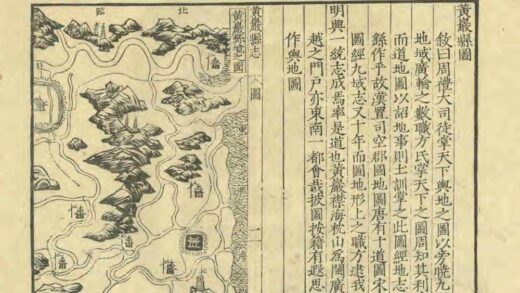 黄巖縣圖
敘曰周禮大司徒掌天下輿地之圖以旁曉九
地域廣輪之數職方氏掌天下之圖周知其利
而道地圖以詔地事則土訓掌之此圖經地志
繇作乎故漢置司空郡國地圖唐有十道圖宋
圖經九域志又十年而圖地形上之職方逮我
明興一統志成焉率是道也黄巖襟海枕山爲閩廣
越之門戶亦東南一都會哉披圖按籍有遐思
作輿地圖
黄巖縣志
圖
二
黄巖縣境之圖
東
北
臨